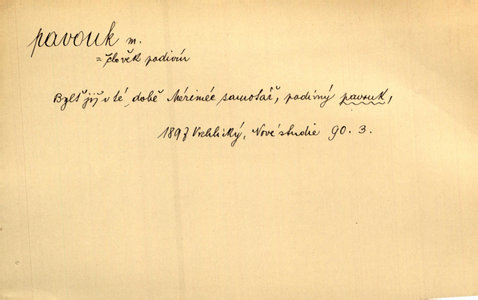 pavouk m.
= člověk podivín
Bylť již v té době Mérimée samotář, podivný pavouk,
1897 Vrchlický, Nové studie 90. 3.